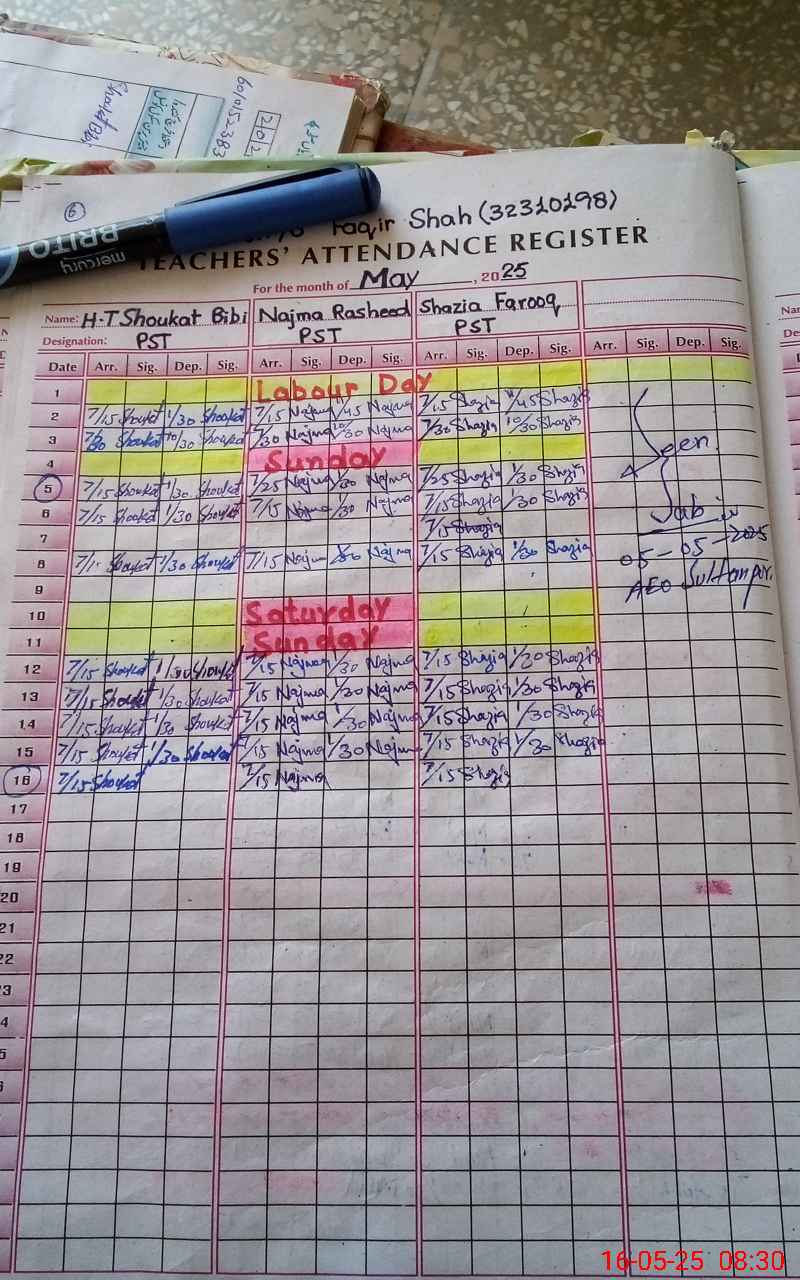 6010152383
202
Shoukat Bibi
6
BRITO
mercury
Faqir Shah (32310198)
TEACHERS' ATTENDANCE REGISTER
For the month of May, 2025
Name: H.T Shoukat Bibi Najma Rasheed Shazia Farooq
Designation: PST PST PST
Date Arr. Sig. Dep. Sig. Arr. Sig. Dep. Sig. Arr. Sig. Dep. Sig. Arr. Sig. Dep. Sig.
1 Labour Day
2 7/15 Shoukat 1/30 Shoukat 7/15 Najma 11/45 Najma 7/15 Shazia 11/45 Shazia
3 7/30 Shoukat 10/30 Shoukat 7/30 Najma 10/30 Najma 7/30 Shazia 10/30 Shazia
4 Sunday
5 7/15 Shoukat 1/30 Shoukat 7/25 Najma 1/30 Najma 7/25 Shazia 1/30 Shazia
6 7/15 Shoukat 1/30 Shoukat 7/15 Najma 1/30 Najma 7/15 Shazia 1/30 Shazia
7 7/15 Shazia
8 Shoukat 1/30 Shoukat 7/15 Najma 1/30 Najma 7/15 Shazia 1/30 Shazia
9
10 Saturday
11 Sunday
12 7/15 Shoukat Shoukat 7/15 Najma 1/30 Najma 7/15 Shazia 1/30 Shazia
13 7/15 Shoukat 1/30 Shoukat 7/15 Najma 1/30 Najma 7/15 Shazia 1/30 Shazia
14 7/15 Shoukat 1/30 Shoukat 7/15 Najma 1/30 Najma 7/15 Shazia 1/30 Shazia
15 7/15 Shoukat 1/30 Shoukat 7/15 Najma 1/30 Najma 7/15 Shazia 1/30 Shazia
16 7/15 Shoukat 7/15 Najma 7/15 Shazia
17
18
19
20
21
22
3
4
5
6
Seen
05-05-2025
AEO Sultanpur.
16-05-25 08:30